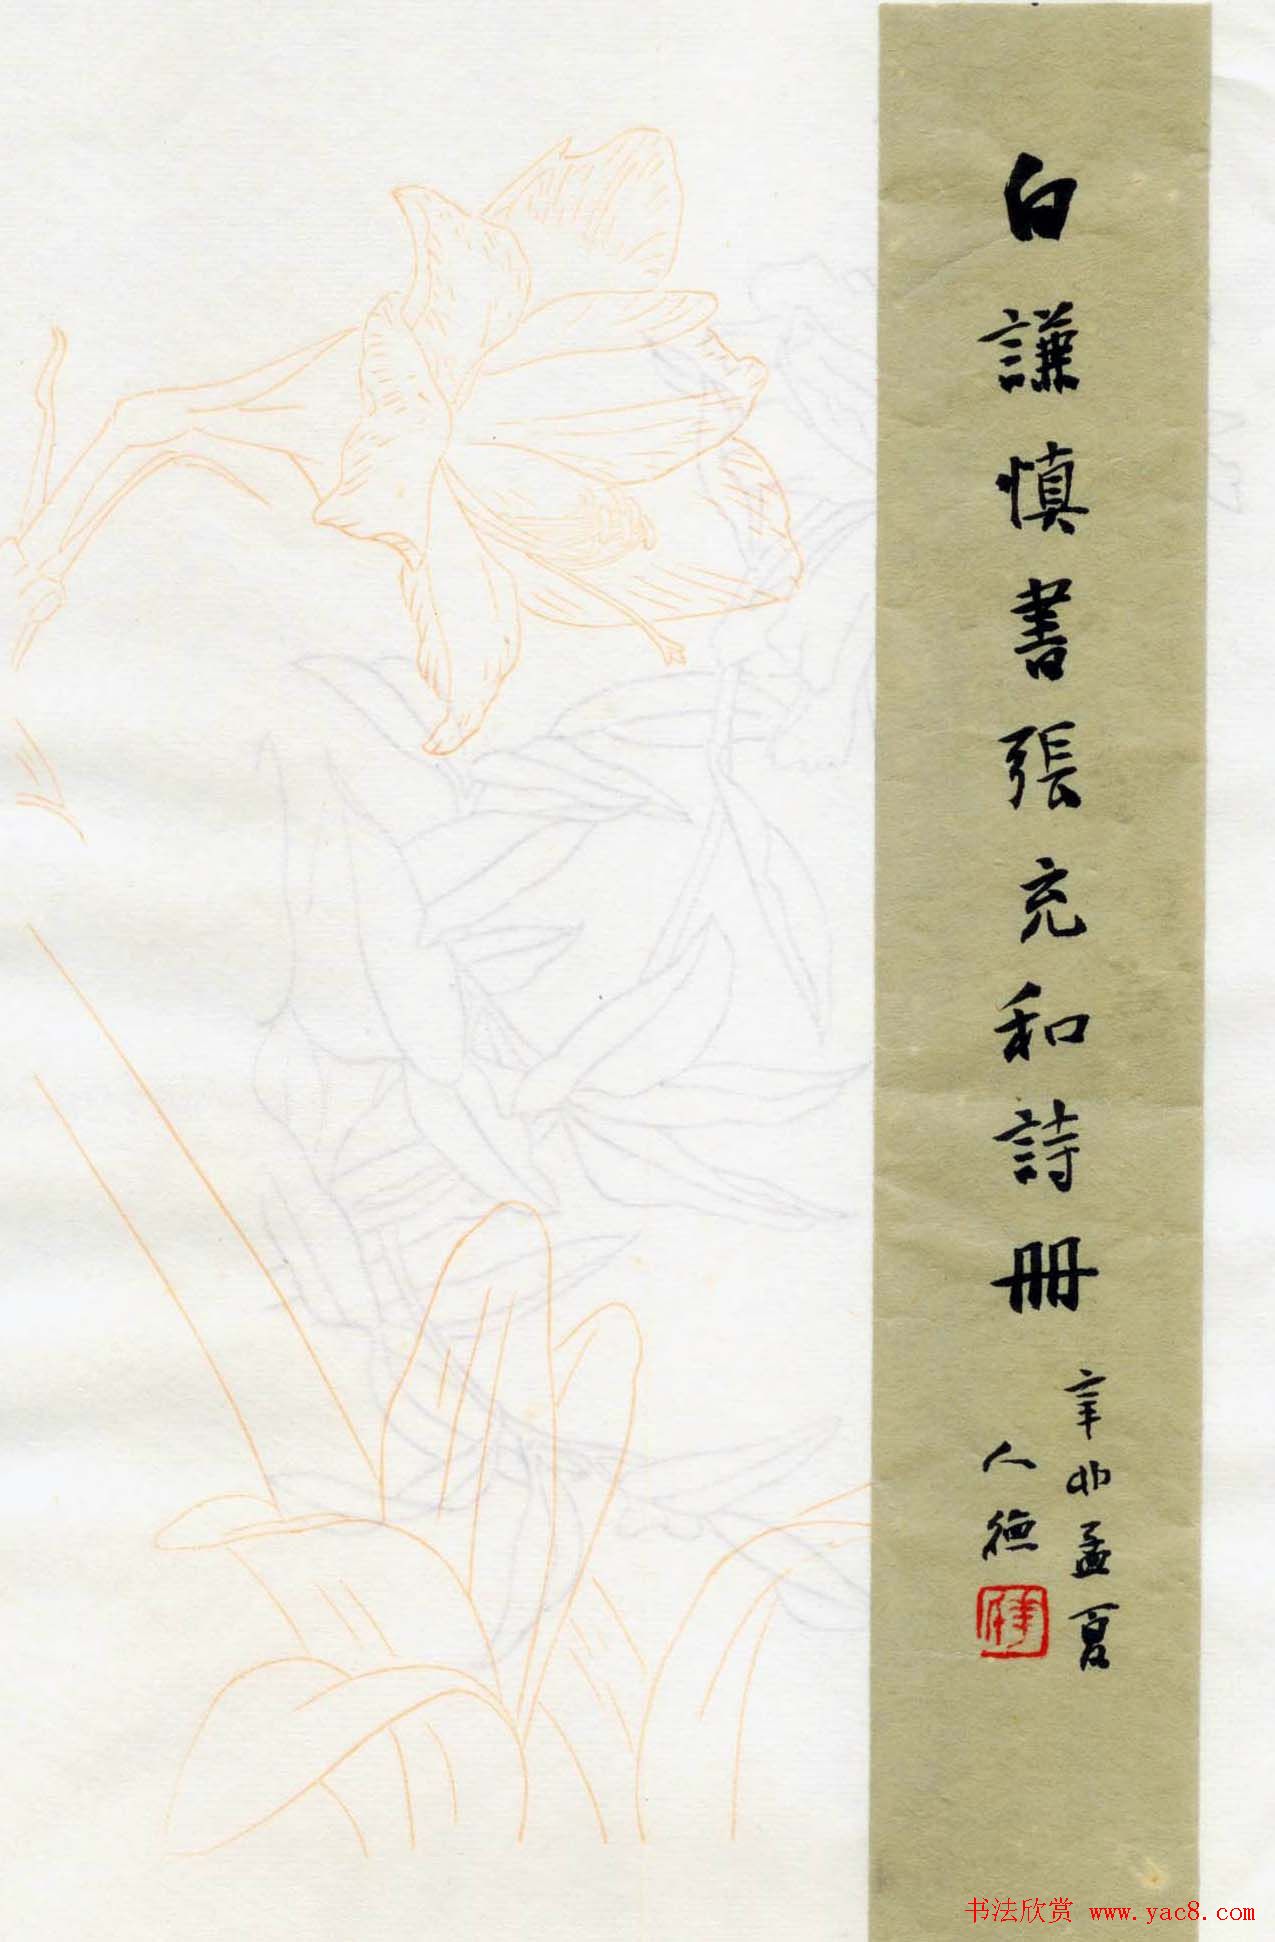 白謙慎書張充和詩冊
辛卯孟夏
人德
书法欣赏 www.yac8.com